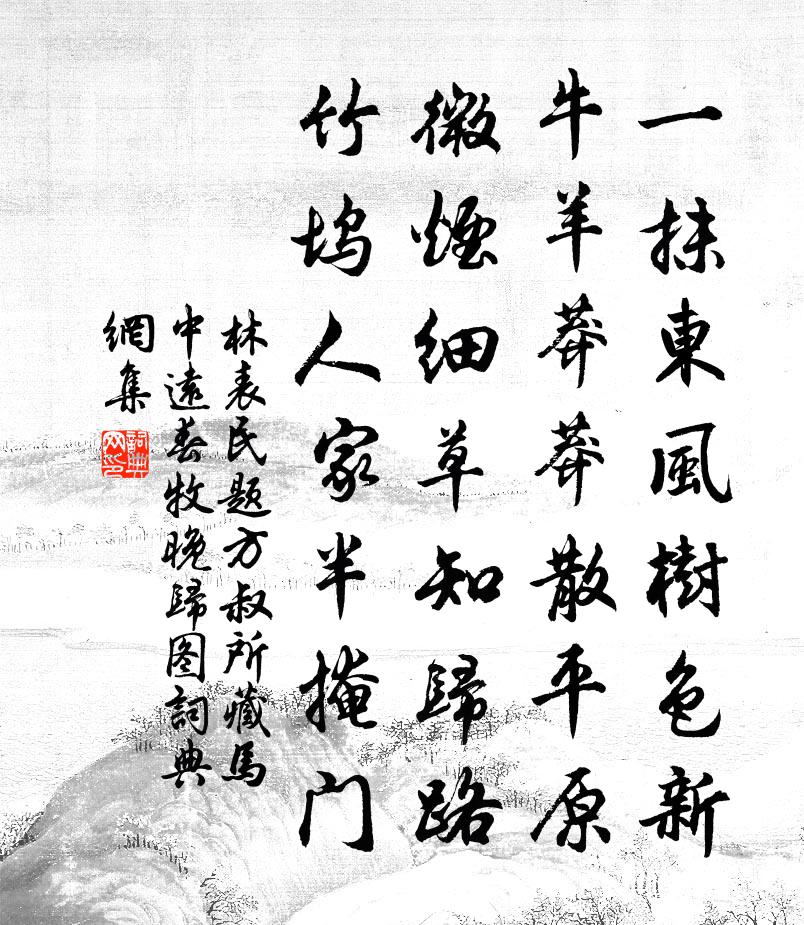 一抹東風樹色新
牛羊莽莽散平原
微煙細草知歸路
竹塢人家半掩门
林表民題方叔所藏馬
中遠春牧晚歸图詞典
網集
詞典网印